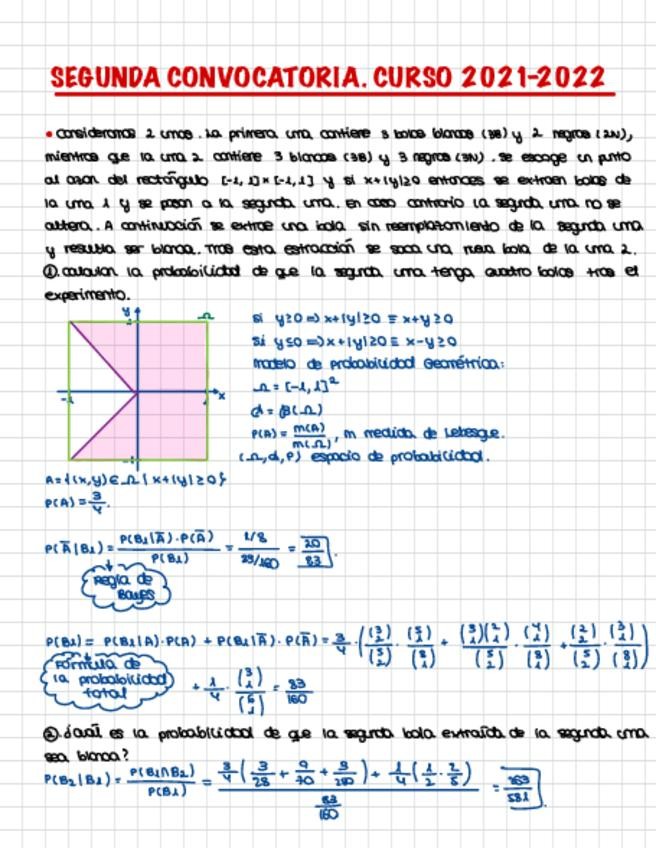 SEGUNDA CONVOCATORIA. CURSO 2021-2022
• Consideramos 2 urnas. La primera urna contiene 3 bolas blancas (3B) y 2 negras (2N),
mientras que la urna 2 contiene 3 blancas (3B) y 3 negras (3N). Se escoge un punto
al azar del rectángulo [-1, 1]×[-1, 1] y si x+|y|≥0 entonces se extraen bolas de
la urna 1 y se pasan a la segunda urna. En caso contrario la segunda urna no se
altera. A continuación se extrae una bola sin reemplazamiento de la segunda urna
y resulta ser blanca. Tras esta extracción se saca una nueva bola de la urna 2.
① calcular la probabilidad de que la segunda urna tenga cuatro bolas tras el
experimento.
y Ω
-1 x
si y≥0 ⇒ x+|y|≥0 ≡ x+y≥0
si y≤0 ⇒ x+|y|≥0 ≡ x-y≥0
Modelo de probabilidad Geométrica:
Ω = [-1, 1]²
𝒜 = β(Ω)
P(A) = m(A)/m(Ω), m medida de Lebesgue.
(Ω, 𝒜, P) espacio de probabilidad.
A = {(x,y) ∈ Ω | x+|y| ≥ 0}
P(A) = 3/4.
P(Ā|B₁) = P(B₁|Ā)·P(Ā)/P(B₁) = 1/8 / = 20/83.
Regla de
Bayes
P(B₁) = P(B₁|A)·P(A) + P(B₁|Ā)·P(Ā) = 3/4 · ( (3 2)/(5 2) · (5 1)/(8 1) + (3 1)(2 1)/(5 2) · (4 1)/(8 1) + (2 2)/(5 2) · (3 1)/(8 1) )
Fórmula de
la probabilidad
total
+ 1/4 · (3 1)/(6 1) = 83/160
② ¿cuál es la probabilidad de que la segunda bola extraída de la segunda urna
sea blanca?
P(B₂|B₁) = P(B₁∩B₂)/P(B₁) = 3/4 (3/28 + 9/70 + 3/280) + 1/4 (1/2 · 2/5) / 83/160 = /581.